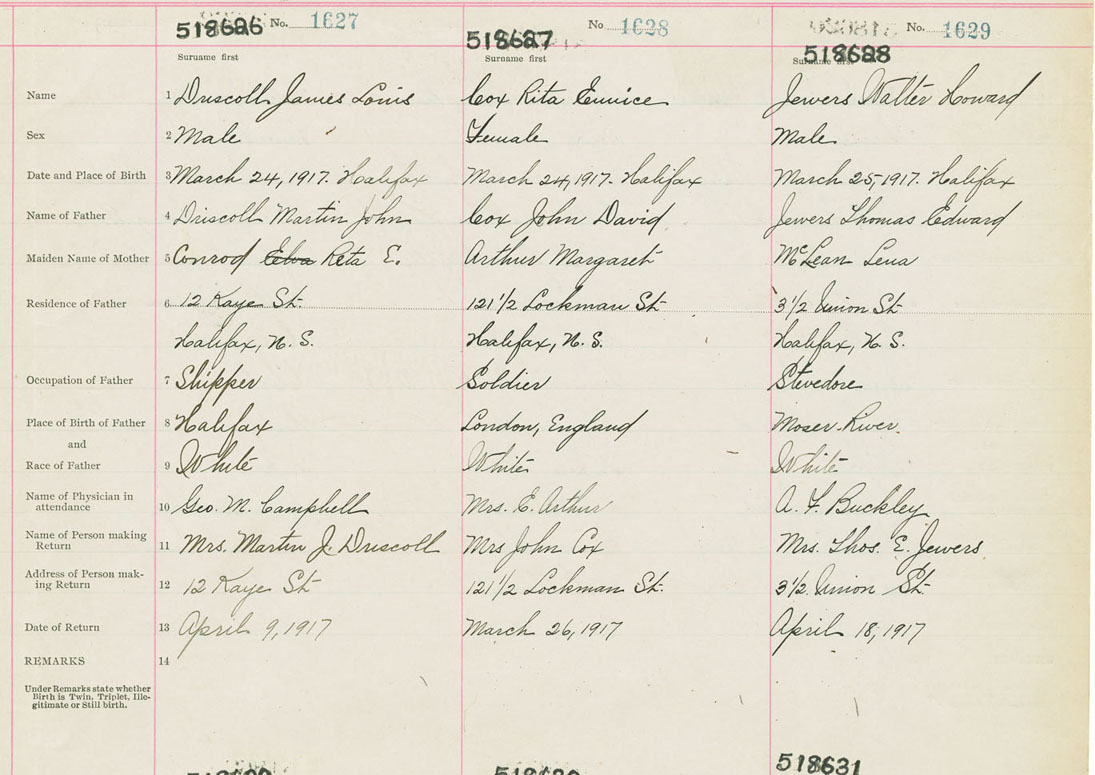 518626 No. 1627
518627 No 1628
518628 No. 1629
Surname first
Surname first
Surname first
Name 1 Driscoll James Louis Cox Rita Eunice Jewers Walter Howard
Sex 2 Male Female Male
Date and Place of Birth 3 March 24, 1917. Halifax March 24, 1917. Halifax March 25, 1917. Halifax
Name of Father 4 Driscoll Martin John Cox John David Jewers Thomas Edward
Maiden Name of Mother 5 Conrod Elva Reta E. Arthur Margaret McLean Lena
Residence of Father 6 12 Kaye St. 121 1/2 Lockman St 3 1/2 Union St
Halifax, N. S. Halifax, N. S. Halifax, N. S.
Occupation of Father 7 Shipper Soldier Stevedore
Place of Birth of Father 8 Halifax London, England Moser River.
and
Race of Father 9 White White White
Name of Physician in
attendance 10 Geo. M. Campbell Mrs. E. Arthur A. F. Buckley
Name of Person making
Return 11 Mrs. Martin J. Driscoll Mrs John Cox Mrs. Thos. E. Jewers.
Address of Person mak-
ing Return 12 12 Kaye St 121 1/2 Lockman St. 3 1/2 Union St.
Date of Return 13 April 9, 1917 March 26, 1917 April 18, 1917
REMARKS 14
Under Remarks state whether
Birth is Twin, Triplet, Ille-
gitimate or Still birth.
518631